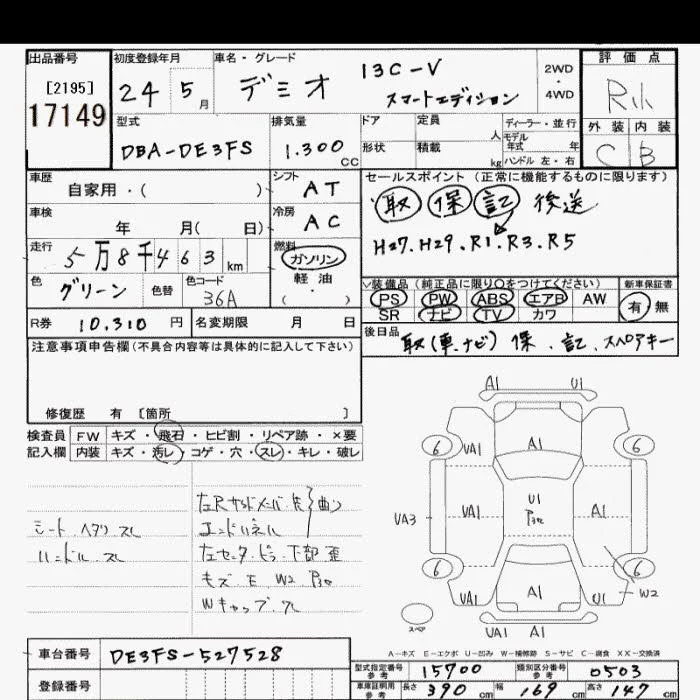 出品番号
[2195]
17149
初度登録年月
24 5月
車名・グレード
デミオ
13C-V
スマートエディション
2WD
・
4WD
評価点
外装 内装
C B
型式
DBA-DE3FS
排気量
1.300 cc
ドア
形状
定員 人
積載 kg
ディーラー・並行
モデル年式 年
ハンドル 左・右
車歴
自家用・( )
シフト
AT
車検
年 月( 日)
冷房
AC
走行
5万8千463 km
燃料
ガソリン
軽油
(・)
色
グリーン
色替
色コード
36A
R券 10.310 円
名変期限 月 日
セールスポイント(正常に機能するものに限ります)
取 保 記 後送
H27.H29.R1.R3.R5
装備品(純正品に限り○をつけてください)
PS PW ABS エアB AW
SR ナビ TV カワ
新車保証書
有 無
後日品
取(車、ナビ)保.記.スペアキー
注意事項申告欄(不具合内容等は具体的に記入して下さい)
修復歴 有 [箇所 ]
検査員 FW キズ・飛石・ヒビ割・リペア跡・×要
記入欄 内装 キズ・汚レ・コゲ・穴・スレ・キレ・破レ
シート ヘタリ スレ
ハンドル スレ
エンドパネル
キズ E W2 P30
Wキャップ ワレ
A1 U1
6 VA1 A1 6
VA3 VA1 U1 A1
P30
6 6
VA1 A1 U1 W2
スペア
VA1 A1
A-キズ E-エクボ U-凹み W-補修跡 S-サビ C-腐食 XX-交換済
車台番号 DE3FS-527528
登録番号
型式指定番号 参考 15700
類別区分番号 参考 0503
車庫証明用 参考 長さ 390 cm 幅 169 cm 高さ 147 cm